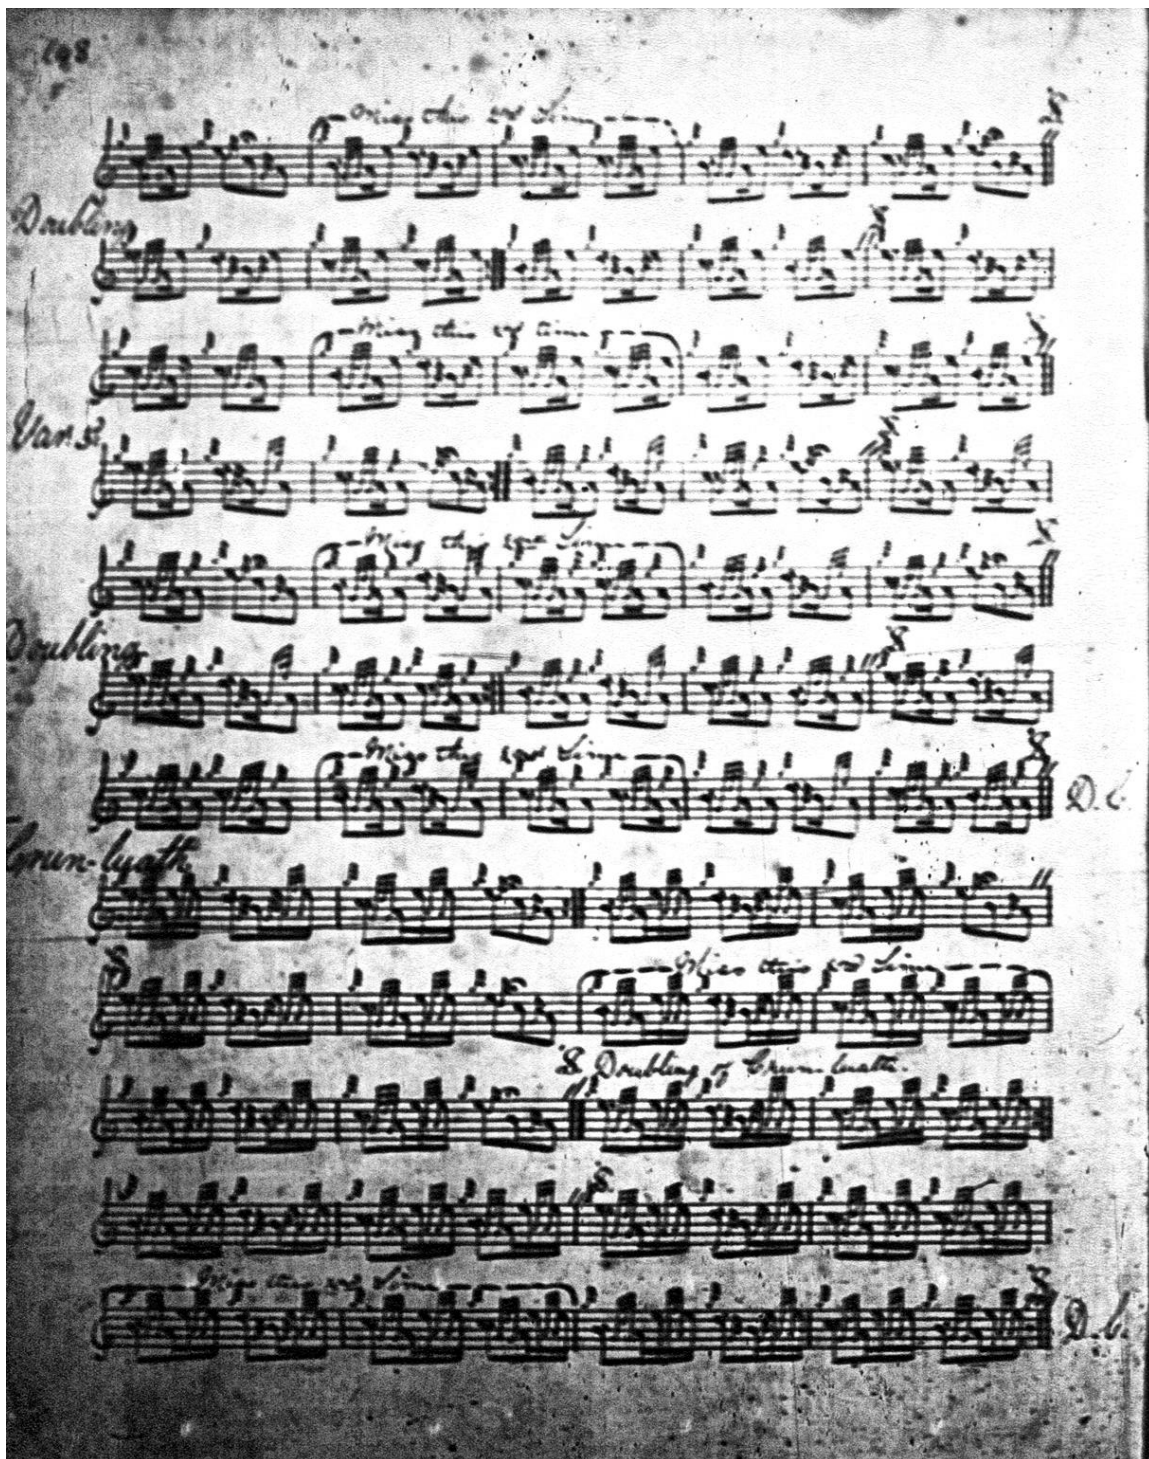 198
Miss this 2nd time
Doubling
Miss this 2d time
Var. 3d
Miss this 2nd time
Doubling
Miss this 2nd time
D.C.
Crun-luath
Miss this 2d time
Doubling of Crun-luath.
Miss this 2d time
D.C.